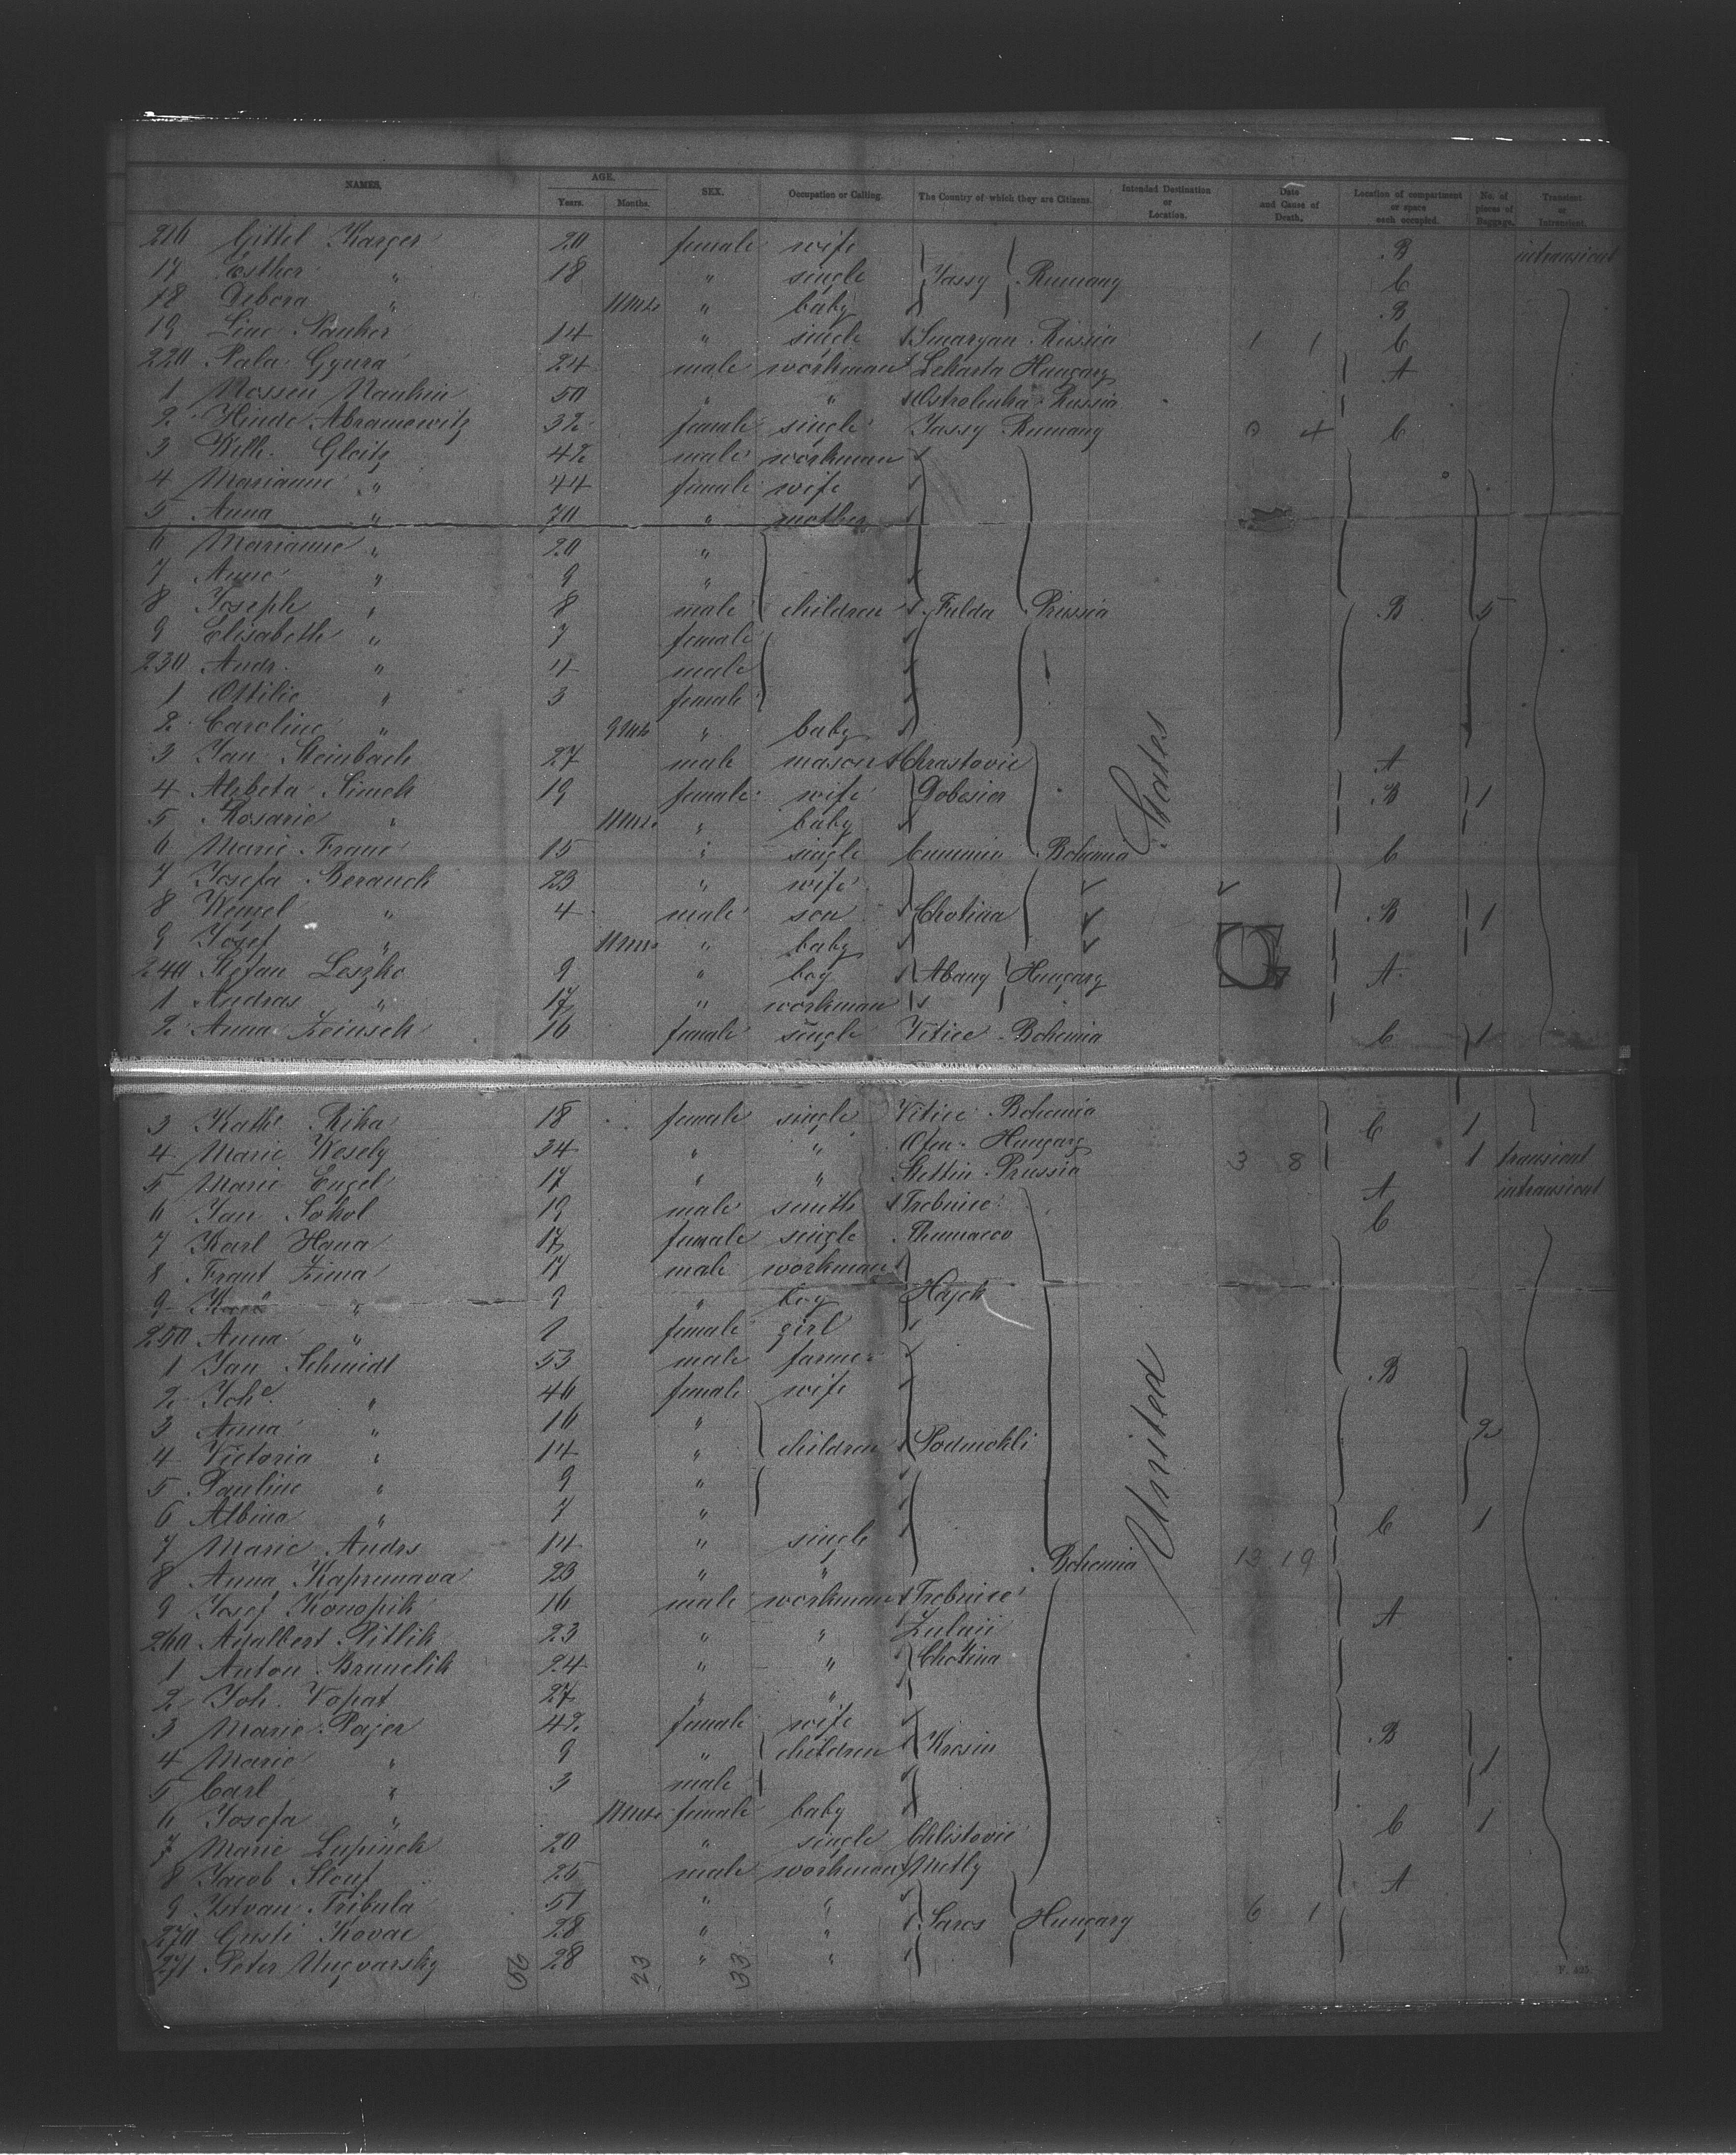 NAMES. AGE. Years. Months. SEX. Occupation or Calling. The Country of which they are Citizens. Intended Destination or Location. Date and Cause of Death. Location of compartment or space each occupied. No. of pieces of Baggage. Transient or Intransient.
216 Gittel Karger 20 female wife B intransient
17 Esther " 18 " single Jassy Rumany C
18 Debora " " baby B
19 14 " single Russia 1 1 C
220 Gyura 24 male workman Hungary A
1 50 " " Ostrolenka Russia
2 Hinde Abramowitz 32 female single Jassy Rumany 0 4 C
3 Wilh. Gleitz 42 male workman
4 Marianne " 44 female wife
5 Anna " 70 " mother
6 Marianne " 20 "
7 Anne " 9 "
8 Joseph " 8 male children Fulda Prussia B 5
9 Elisabeth " 7 female
230 Andr. " 4 male
1 Ottilie " 3 female
2 Caroline " 9 Mts " baby
3 Jan Steinbach 27 male mason Chrastovic A
4 Alzbeta Simek 19 female wife Dobesier B 1
5 Rosarie " " baby
6 Marie Franc 15 " single Bohemia C
7 Josefa Beranek 23 " wife
8 Wenzel " 4 male son Chotina B 1
9 Josef " " baby
240 Stefan Leszko 9 " boy Abany Hungary A
1 Andras " 17 " workman
2 Anna 16 female single Vitice Bohemia C 1
3 Kath. Riha 18 female single Vitice Bohemia C 1
4 Marie Wesely 34 " " Ofen Hungary 3 8 1 transient
5 Marie Engel 17 " " Stettin Prussia A intransient
6 Jan Sokol 19 male smith Trebnice C
7 Karl Hana 17 female single
8 Frant Zima 17 male workman
9 " 9 " boy Hajek
250 Anna " female girl
1 Jan Schmidt 53 male farmer B
2 Joh. " 46 female wife
3 Anna " 16 "
4 Victoria " 14 " children Podmokli 2
5 Pauline " 9 "
6 Albina " 7 " C 1
7 Marie Andrs 14 " single
8 Anna Kaprunava 23 " " Bohemia 13 19
9 Josef Konopik 16 male workman Trebnice A
260 Adalbert Pitlik 23 " "
1 Anton Brunclik 24 " " Chotina
2 Joh. Vopat 27 " "
3 Marie Pajer 42 female wife B
4 Marie " 9 " children Krasin 1
5 Carl " 3 male
6 Josefa " female baby C 1
7 Marie Lupinek 20 " single Chlistovic
8 Jacob Slouf 25 male workman A
9 Istvan Tribula 51 " "
270 Gusti Kovac 28 " " Saros Hungary 6 1
271 Peter Ungvarsky 28 " "
United States
29 23 33
F. 425.